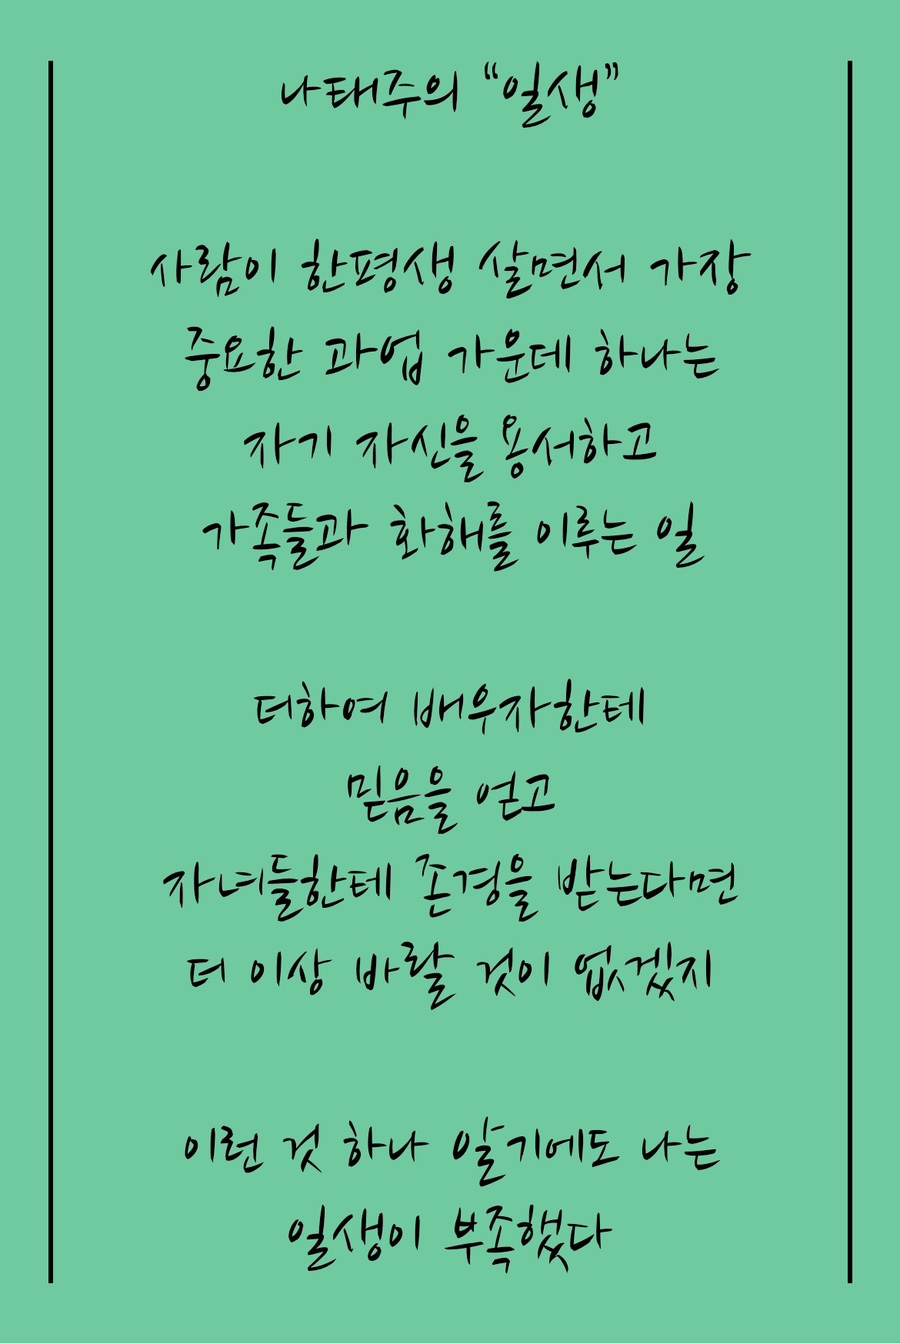 나태주의 “일생”
사람이 한평생 살면서 가장
중요한 과업 가운데 하나는
자기 자신을 용서하고
가족들과 화해를 이루는 일
더하여 배우자한테
믿음을 얻고
자녀들한테 존경을 받는다면
더 이상 바랄 것이 없겠지
이런 것 하나 알기에도 나는
일생이 부족했다